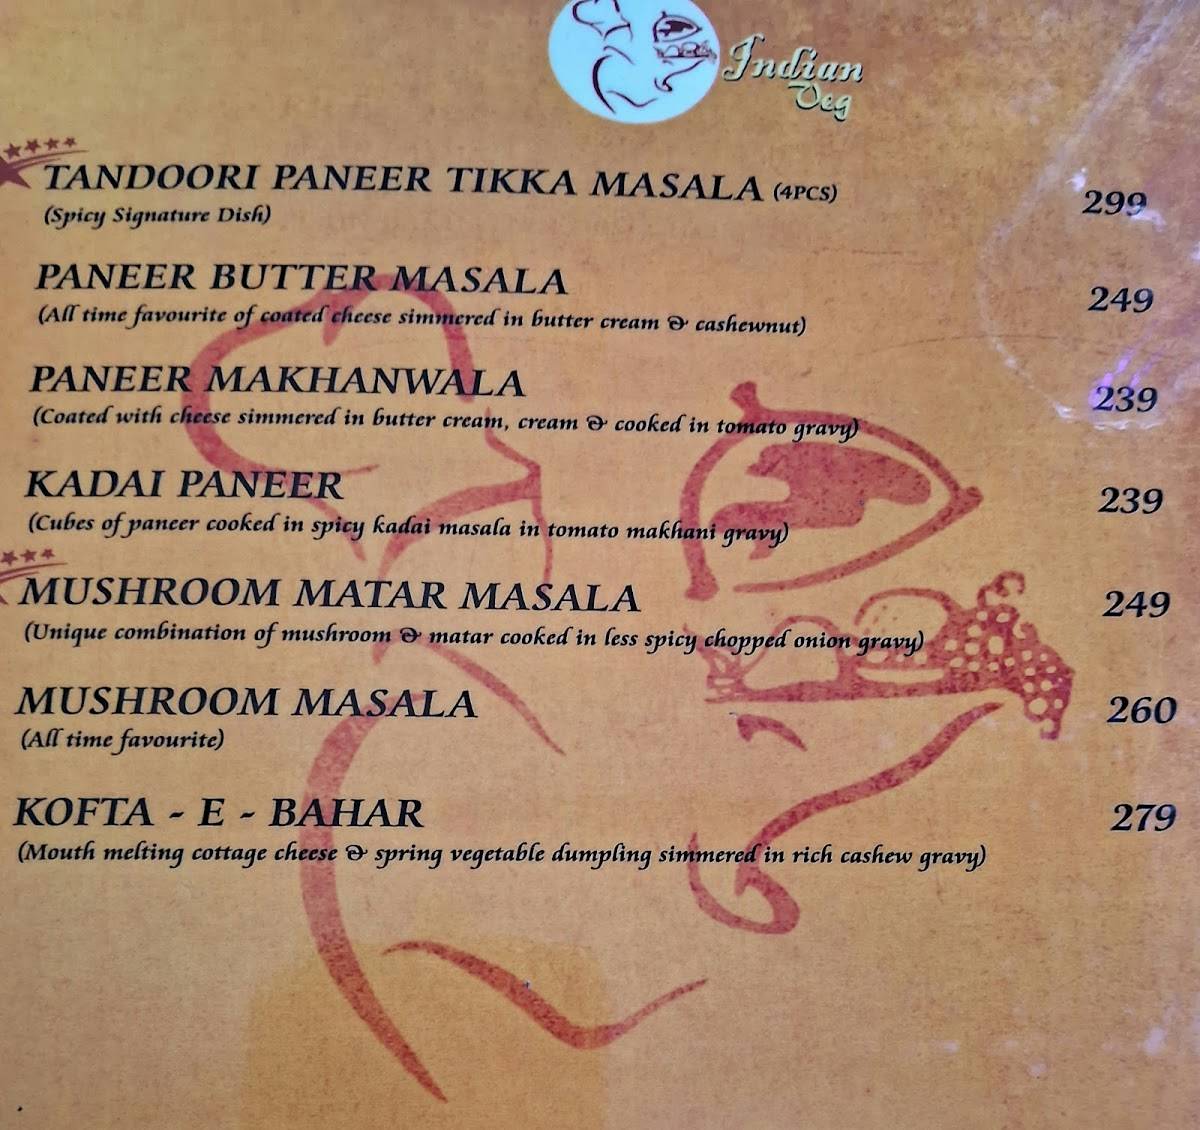 Indian
Veg
TANDOORI PANEER TIKKA MASALA (4PCS) 299
(Spicy Signature Dish)
PANEER BUTTER MASALA 249
(All time favourite of coated cheese simmered in butter cream & cashewnut)
PANEER MAKHANWALA 239
(Coated with cheese simmered in butter cream, cream & cooked in tomato gravy)
KADAI PANEER 239
(Cubes of paneer cooked in spicy kadai masala in tomato makhani gravy)
MUSHROOM MATAR MASALA 249
(Unique combination of mushroom & matar cooked in less spicy chopped onion gravy)
MUSHROOM MASALA 260
(All time favourite)
KOFTA - E - BAHAR 279
(Mouth melting cottage cheese & spring vegetable dumpling simmered in rich cashew gravy)